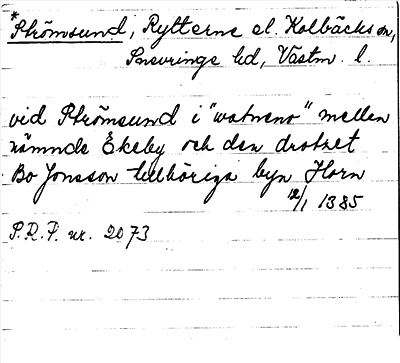 *Strömsund, Rytterne el. Kolbäcks sn,
Snevringe hd, Västm. l.
vid Strömsund i "watneno" mellan
nämnde Ekeby och den drotzet
Bo Jonsson tillhöriga byn Horn
12/1 1385
S.R.P. nr. 2073